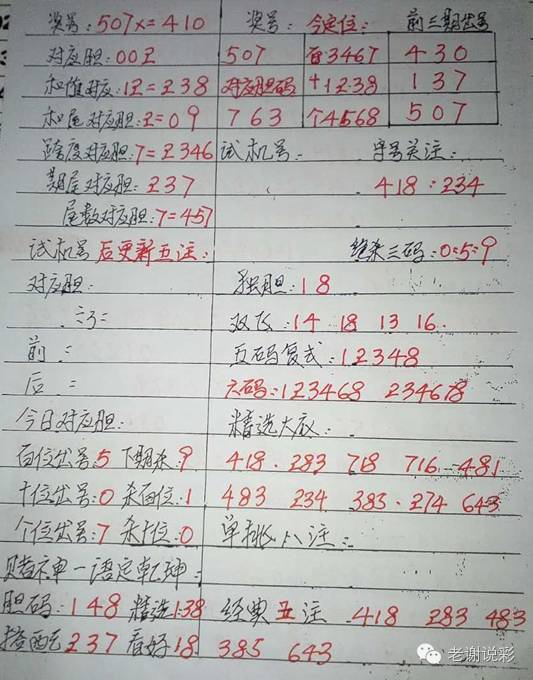 奖号:507x=410 奖号: 今定位: 前三期出号
对应胆:00Z 507 百3467 430
和值对应:1Z=Z38 对应胆码 十1238 137
和尾对应胆:Z=09 763 个4568 507
跨度对应胆:7=Z346 试机号: 字号关注:
期尾对应胆:Z37 418:234
尾数对应胆:7=457
试机号后更新五注: 绝杀三码:0:5:9
对应胆: 独胆:18
双飞:14 18 13 16
前 = 五码复式:12348
后 = 六码:123468 234678
今日对应胆: 精选大底:
百位出号:5 下期杀:9 418. 283 718 716 481
十位出号:0 杀百位:1 483 234 383. 274 643
个位出号:7 杀十位:0 单挑八注:
赌神一语定乾坤:
胆码:148 精选138 经典五注 418 283 483
搭配237 看好18 385 643
老谢说彩